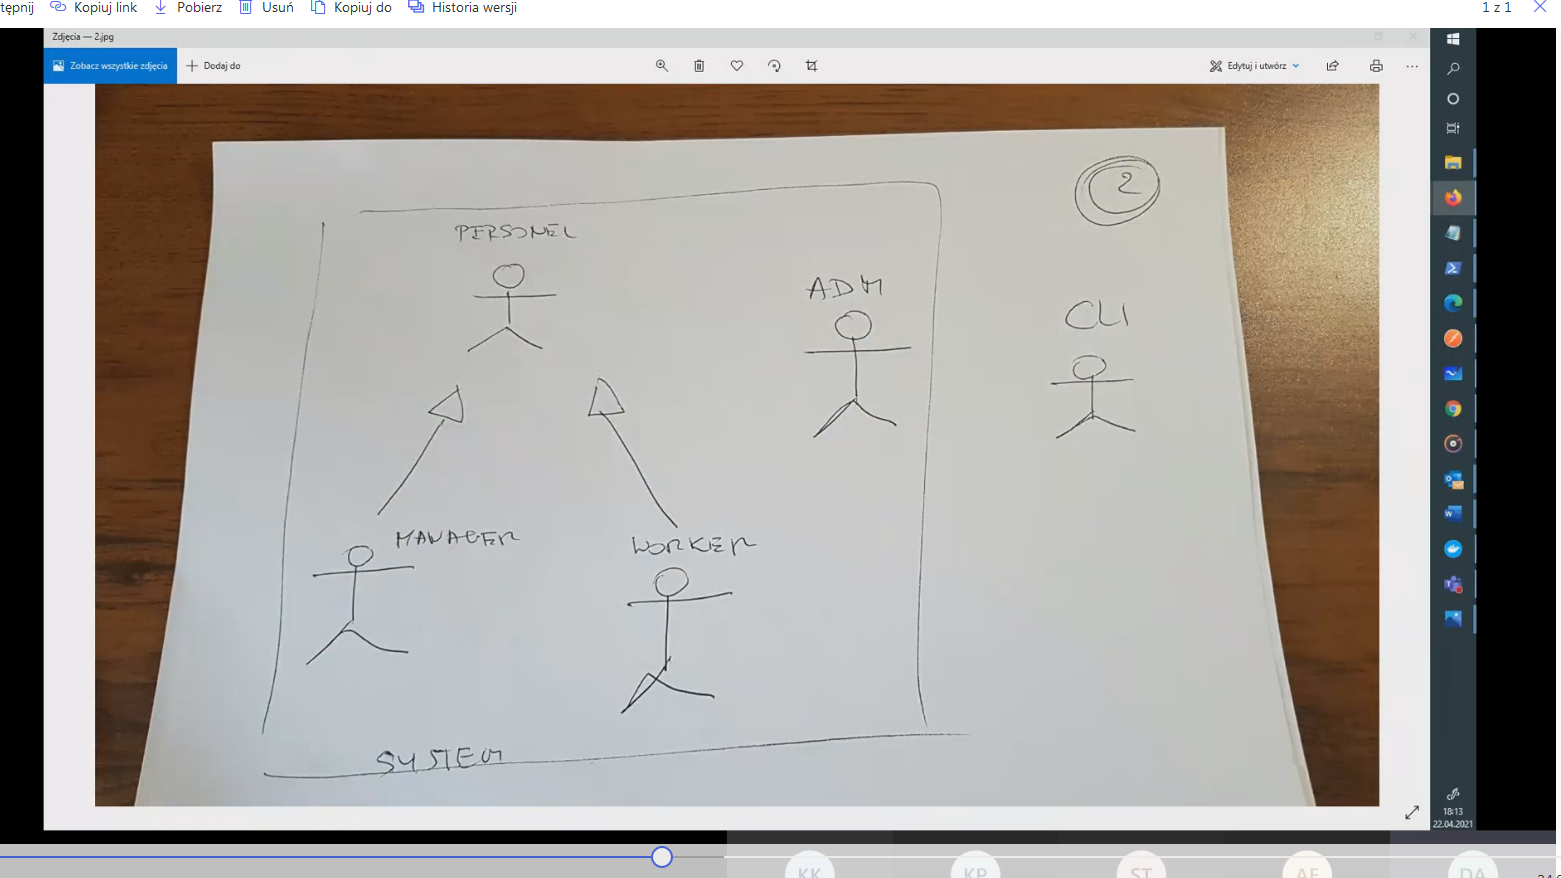 tępnij Kopiuj link Pobierz Usuń Kopiuj do Historia wersji 1 z 1
Zdjęcia — 2.jpg
Zobacz wszystkie zdjęcia Dodaj do Edytuj i utwórz
2
PERSONEL
ADM
CLI
MANAGER
WORKER
SYSTEM
18:13
22.04.2021
KK KP ST AF DA